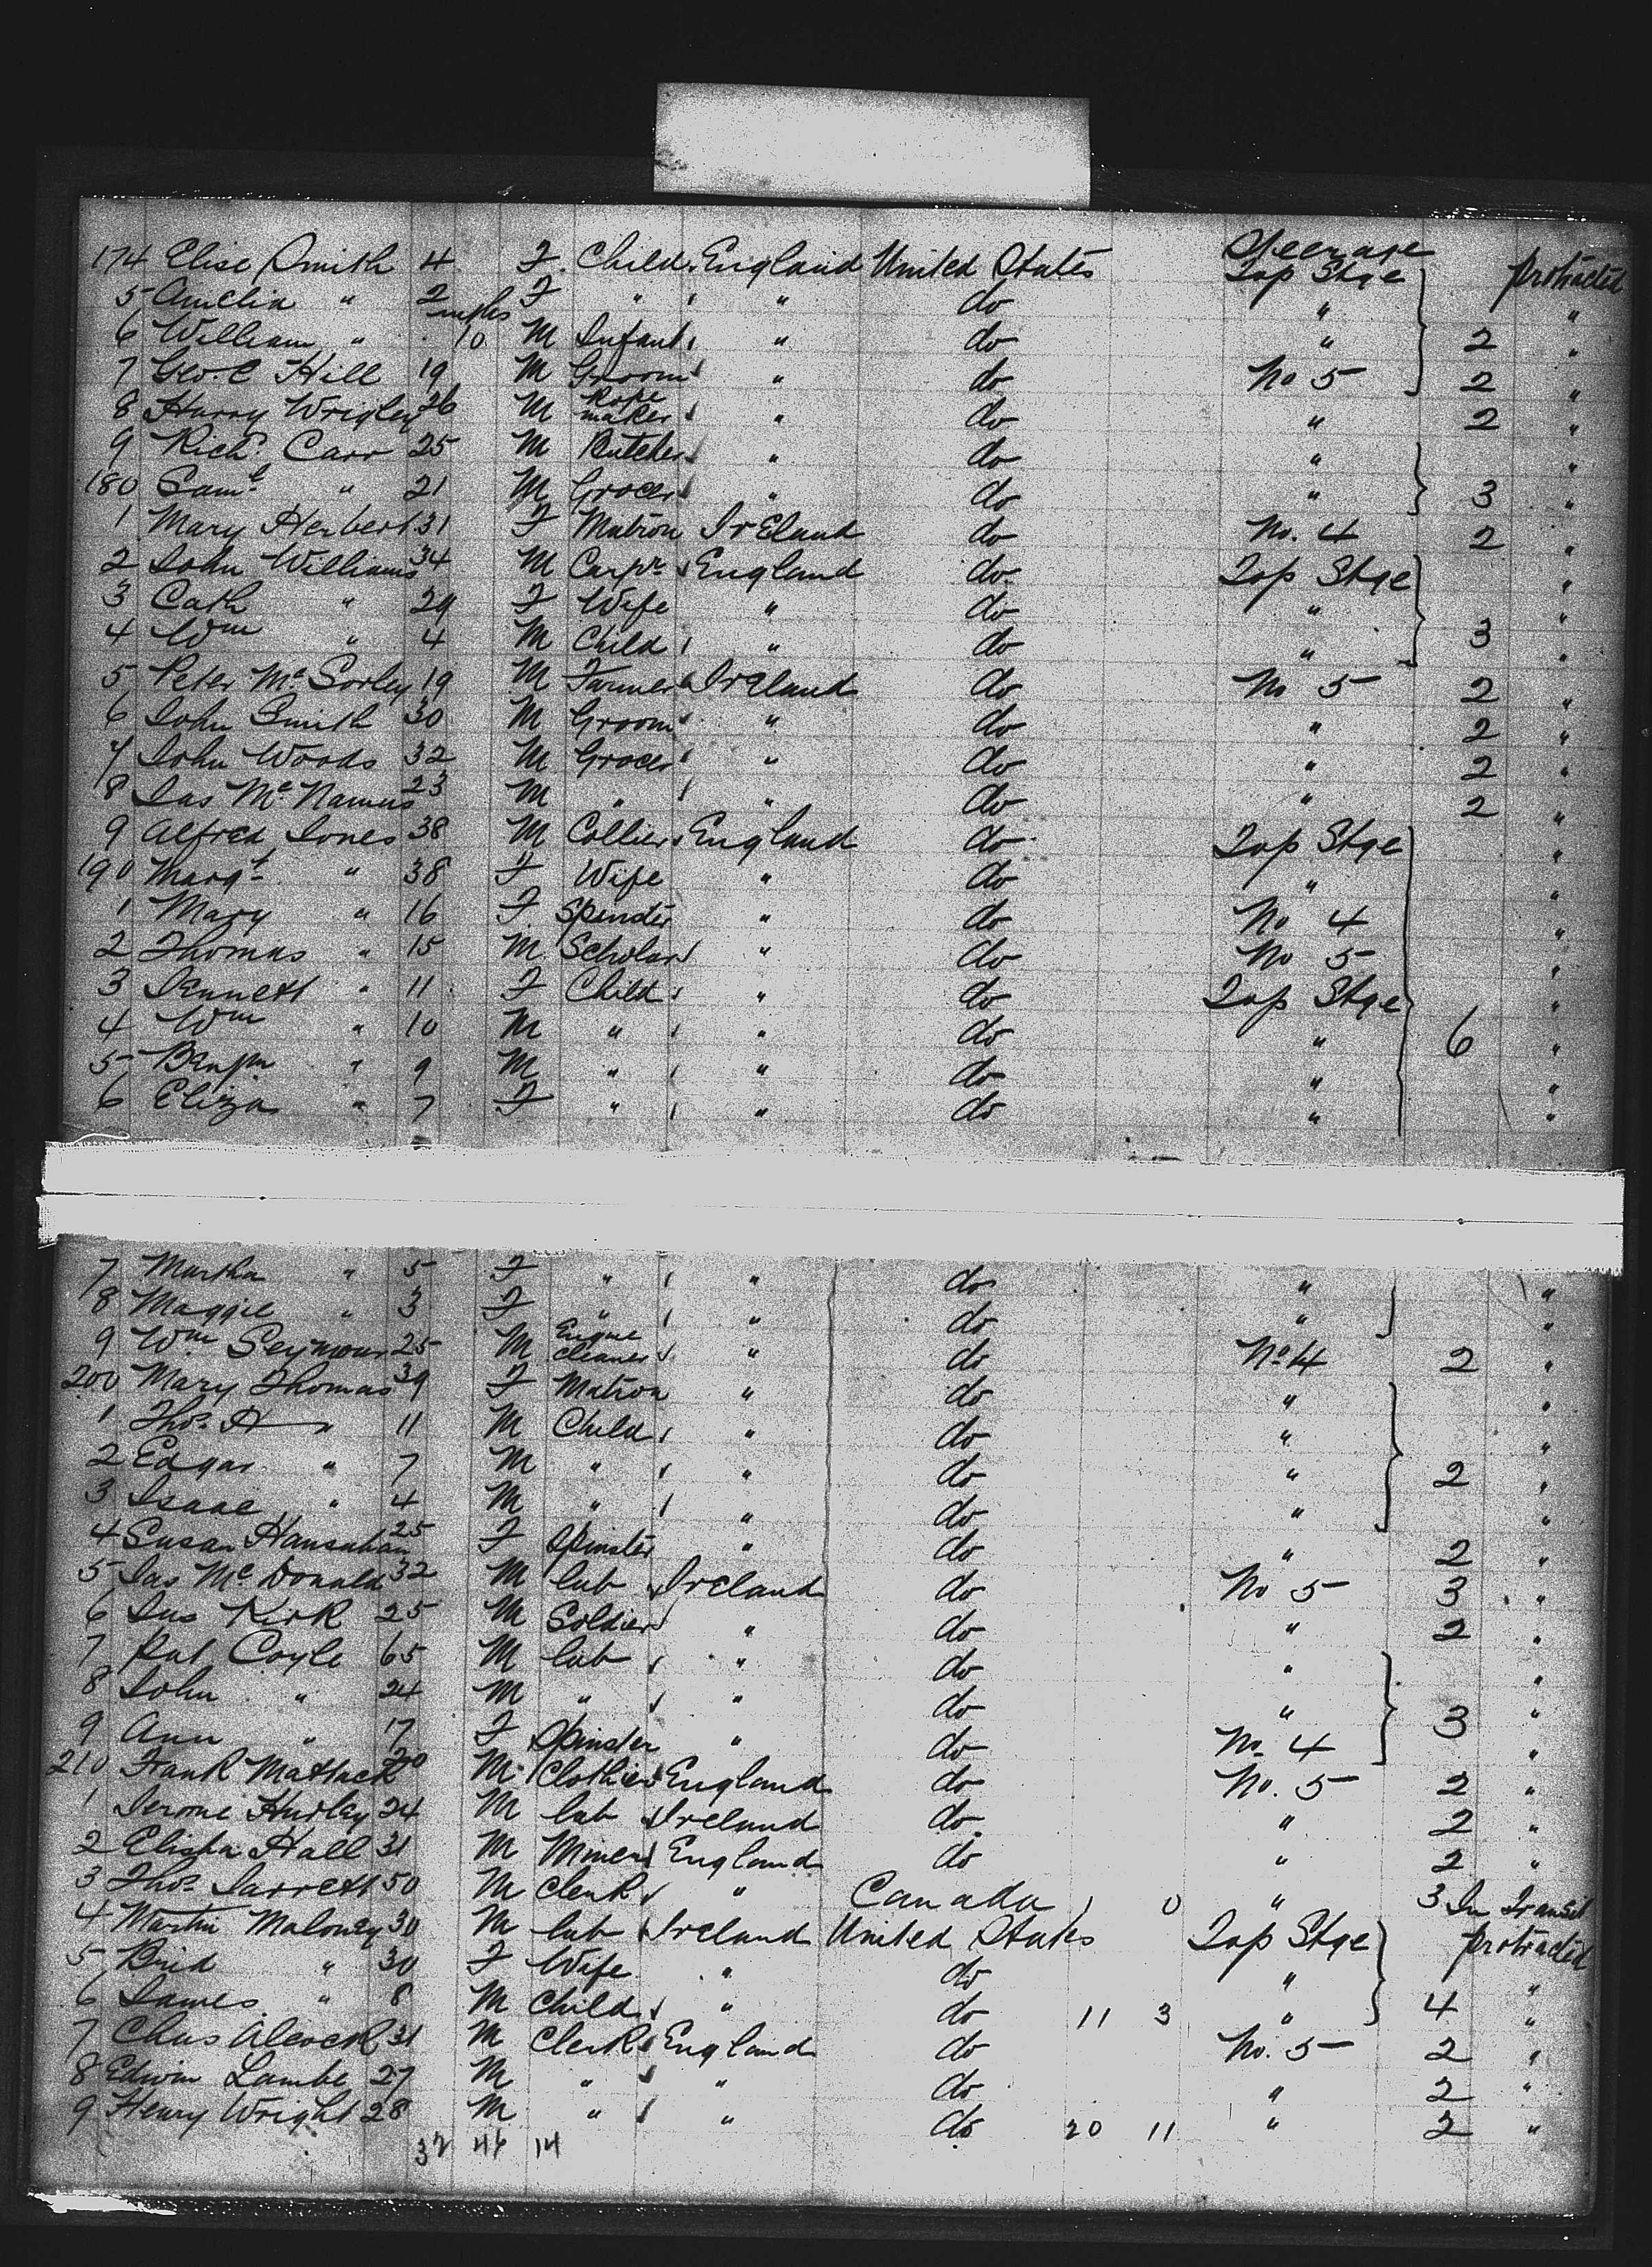 Steerage
174 Elise Smith 4 F. Child England United States Top Stge protracted
5 Amelia " 2 F " " do " "
mths
6 William " 10 M Infant " do " 2 "
7 Geo. C Hill 19 M Groom " do No 5 2 "
8 Harry Wrigley 26 M Rope maker " do " 2 "
9 Richd. Carr 25 M Butcher " do " "
180 Saml " 21 M Grocer " do " 3 "
1 Mary Herbert 31 F Matron Ireland do No. 4 2 "
2 John Williams 34 M Carpr. England do Top Stge "
3 Cath " 29 F Wife " do " "
4 Wm " 4 M Child " do " 3 "
5 Peter Mc Sorley 19 M Farmer Ireland do No 5 2 "
6 John Smith 30 M Groom " do " 2 "
7 John Woods 32 M Grocer " do " 2 "
8 Jas Mc 23 M " " do " 2 "
9 Alfred Jones 38 M Collier England do Top Stge "
190 Margt " 38 F Wife " do " "
1 Mary " 16 F Spinster " do No 4 "
2 Thomas " 15 M Scholar " do No 5 "
3 Jennett " 11 F Child " do Top Stge "
4 Wm " 10 M " " do " 6 "
5 Benjm " 9 M " " do " "
6 Eliza " 7 F " " do " "
7 Martha " 5 F " " do " "
8 Maggie " 3 F " " do " "
9 Wm Seymour 25 M Engine cleaner " do No 4 2 "
200 Mary Thomas 39 F Matron " do " "
1 Thos. H " 11 M Child " do " "
2 Edgar " 7 M " " do " 2 "
3 Isaac " 4 M " " do " "
4 Susan 25 F Spinster " do " 2 "
5 Jas Mc Donald 32 M lab Ireland do No 5 3 "
6 Jas Kirk 25 M Soldier " do " 2 "
7 Pat Coyle 65 M lab " do " "
8 John " 24 M " " do " 3 "
9 Ann " 17 F Spinster " do No 4 "
210 Frank Mattack 20 M Clothier England do No. 5 2 "
1 Jerome Hurley 24 M lab Ireland do " 2 "
2 Elisha Hall 31 M Miner England do " 2 "
3 Thos. Jarrett 50 M Clerk " Canada 1 0 " 3 In Transit
4 Martin Maloney 30 M lab Ireland United States Top Stge protracted
5 Brid " 30 F Wife " do " "
6 James " 8 M Child " do 11 3 " 4 "
7 Chas Alcock 31 M Clerk England do No. 5 2 "
8 Edwin Lambe 27 M " " do " 2 "
9 Henry Wright 28 M " " do 20 11 " 2 "
32 46 14